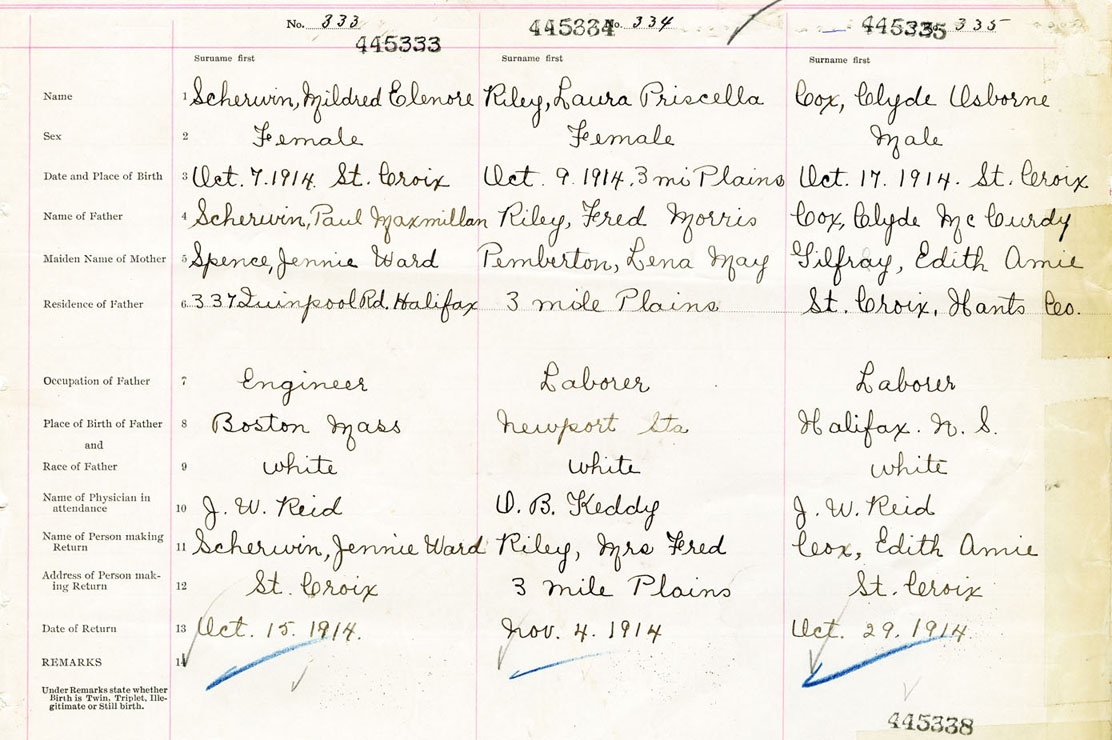 No. 333 445333 445334 No. 334 445335 335
Surname first Surname first Surname first
Name 1 Scherwin, Mildred Elenore Riley, Laura Priscella Cox, Clyde Osborne
Sex 2 Female Female Male
Date and Place of Birth 3 Oct. 7. 1914. St. Croix Oct. 9. 1914, 3 mi Plains Oct. 17. 1914. St. Croix
Name of Father 4 Scherwin, Paul Maxmillan Riley, Fred Morris Cox, Clyde Mc Curdy
Maiden Name of Mother 5 Spence, Jennie Ward Pemberton, Lena May Gilfray, Edith Amie
Residence of Father 6 337 Quinpool Rd. Halifax 3 mile Plains St. Croix, Hants Co.
Occupation of Father 7 Engineer Laborer Laborer
Place of Birth of Father 8 Boston Mass Newport Sta Halifax. N. S.
and
Race of Father 9 white white white
Name of Physician in
attendance 10 J. W. Reid O. B. Keddy J. W. Reid
Name of Person making
Return 11 Scherwin, Jennie Ward Riley, Mrs Fred Cox, Edith Amie
Address of Person mak-
ing Return 12 St. Croix 3 mile Plains St. Croix
Date of Return 13 Oct. 15. 1914. Nov. 4. 1914 Oct. 29. 1914.
REMARKS 14
Under Remarks state whether
Birth is Twin, Triplet, Ille-
gitimate or Still birth.
445338